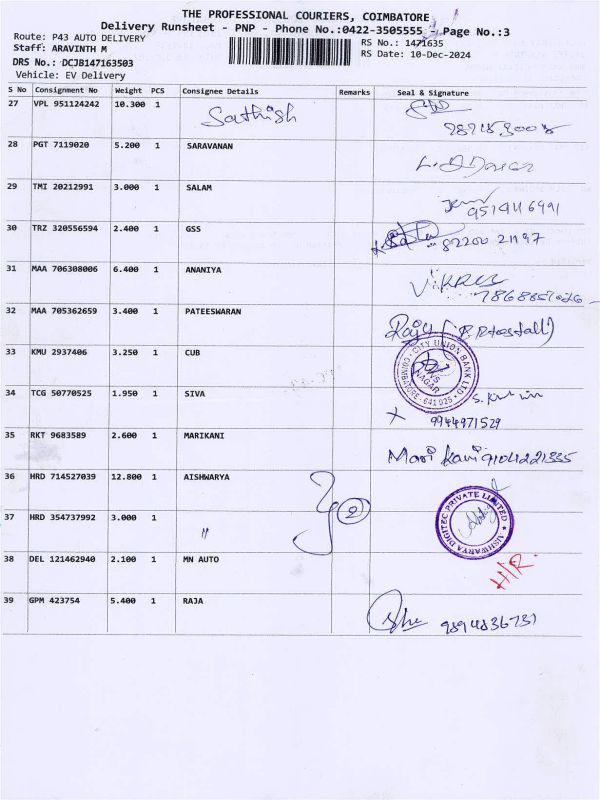 THE PROFESSIONAL COURIERS, COIMBATORE
Delivery Runsheet - PNP - Phone No.:0422-3505555 - Page No.:3
Route: P43 AUTO DELIVERY
RS No.: 1471635
Staff: ARAVINTH M
RS Date: 10-Dec-2024
DRS No.: DCJB147163503
Vehicle: EV Delivery
S No Consignment No Weight PCS Consignee Details Remarks Seal & Signature
27 VPL 951124242 10.300 1 Sathish
28 PGT 7119020 5.200 1 SARAVANAN
29 TMI 20212991 3.000 1 SALAM
30 TRZ 320556594 2.400 1 GSS 82200 21197
31 MAA 706308006 6.400 1 ANANIYA
32 MAA 705362659 3.400 1 PATEESWARAN Raju
33 KMU 2937406 3.250 1 CUB CITY UNION BANK LTD COIMBATORE - 641 025 NAGAR
34 TCG 50770525 1.950 1 SIVA 9944971529
35 RKT 9683589 2.600 1 MARIKANI Mari Kani
36 HRD 714527039 12.800 1 AISHWARYA 2 AISHWARYA DIGITEC PRIVATE LIMITED
37 HRD 354737992 3.000 1 "
38 DEL 121462940 2.100 1 MN AUTO H/R.
39 GPM 423754 5.400 1 RAJA 9894836731